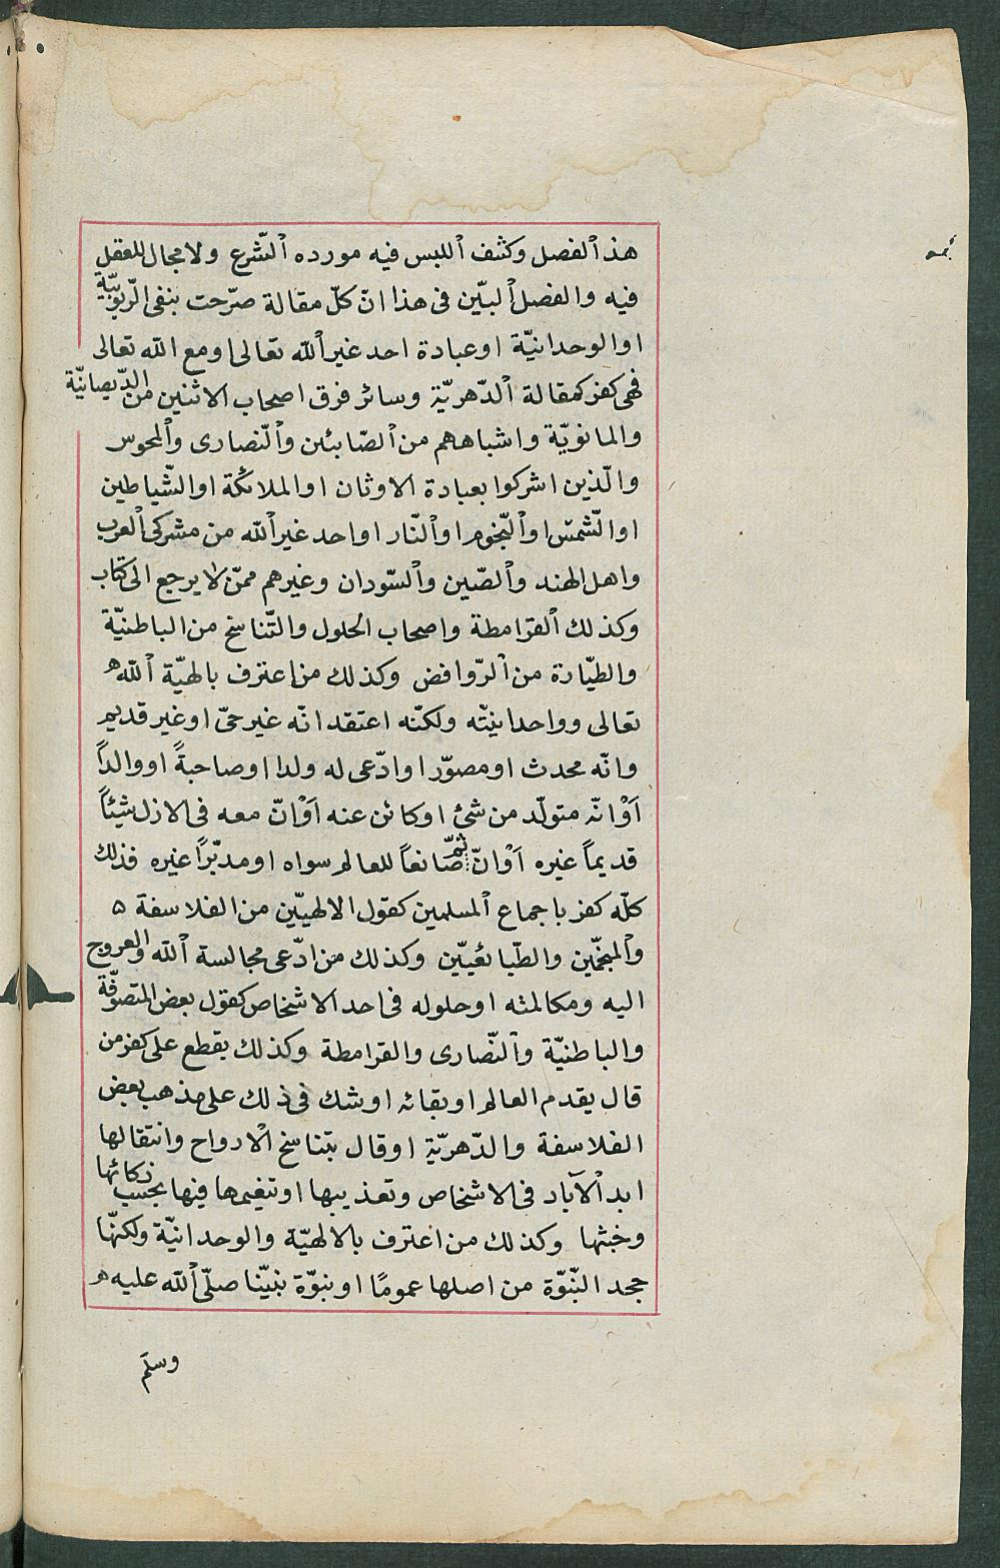 هذ ٱلفصل وكشف ٱللبس فيه مورده ٱلشّرع ولا مجال للعقل
فيه والفصل ٱلبيّن فى هذا انّ كلّ مقالة صرّحت بنفى الرّبوبيّة
او الوحدانيّة او عبادة احد غير ٱلله تعالى او مع الله تعالى
فهى كفر كمقالة ٱلدّهريّة وسائر فرق اصحاب الاثنين من الدّيصانيّة
والمانويّة واشباههم من ٱلصّابئين وٱلنّصارى وٱلمجوس
والّذين اشركوا بعبادة الاوثان او الملائكة او الشّياطين
او الشّمس او ٱلنّجوم او ٱلنّار او احد غير ٱلله من مشركى ٱلعرب
واهل الهند وٱلصّين وٱلسّودان وغيرهم ممّن لا يرجع الى كتاب
وكذلك ٱلقرامطة واصحاب الحلول والتّناسخ من الباطنيّة
والطّيّارة من ٱلرّوافض وكذلك من اعترف بالهيّة ٱلله
تعالى ووحدانيّته ولكنّه اعتقد انّه غير حىّ او غير قديم
وانّه محدث او مصوّر او ادّعى له ولدا او صاحبةً او والداً
اَوْ انّه متولّد من شئ او كائن عنه اَوْ انّ معه فى الازل شيئاً
قديماً غيره اَوْ انّ ثمّ صانعاً للعالم سواه او مدبّراً غيره فذلك
كلّه كفر باجماع ٱلمسلمين كقول الالهيّين من الفلاسفة
وٱلمنجّمين والطّبائعيّين وكذلك من ادّعى مجالسة ٱلله والعروج
اليه ومكالمته او حلوله فى احد الاشخاص كقول بعض المتصوّفة
والباطنيّة وٱلنّصارى والقرامطة وكذلك يقطع على كفر من
قال بقدم العالم او بقائه او شك فى ذلك على مذهب بعض
الفلاسفة والدّهريّة او قال بتناسخ ٱلارواح وانتقالها
ابد ٱلآباد فى الاشخاص وتعذيبها او تنعيمها فيها بحسب زكائها
وخبثها وكذلك من اعترف بالالهيّة والوحدانيّة ولكنّها
جحد النّبوّة من اصلها عمومًا او نبوّة نبيّنا صلّى ٱلله عليه
وسلّم